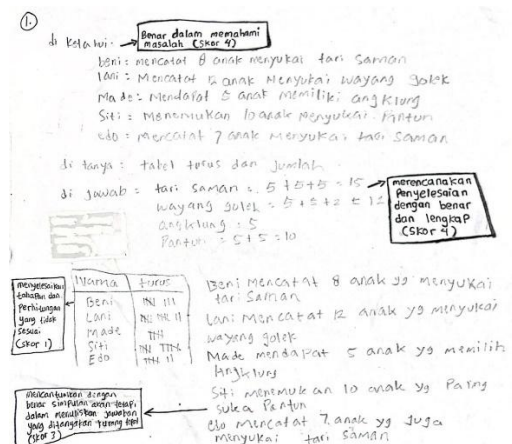 1.
Benar dalam memahami
masalah (skor 4)
di ketahui:
beni: mencatat 8 anak menyukai tari saman
lani: Mencatat 12 anak Menyukai wayang golek
Made: Mendapat 5 anak memiliki angklung
Siti: Menemukan 10 anak menyukai Pantun
edo: mencatat 7 anak Menyukai tari saman
di tanya: tabel turus dan jumlah
di jawab: tari saman = 5+5+5 = 15
wayang golek = 5+5+2 = 12
angklung = 5
Pantun = 5+5 = 10
merencanakan
Penyelesaian
dengan benar
dan lengkap
(skor 4)
menyelesaikan
tahapan dan
Perhitungan
yang tidak
sesuai
(skor 1)
Nama turus
Beni
Lani
Made
Siti
Edo
Beni Mencatat 8 anak yg menyukai
tari saman
Lani Mencatat 12 anak yg menyukai
wayang golek
Made mendapat 5 anak yg memilih
angklung
Siti menemukan 10 anak yg Paling
suka Pantun
edo mencatat 7 anak yg juga
menyukai tari saman
mencantumkan dengan
benar simpulan akan tetapi
dalam menuliskan jawaban
yang ditanyakan kurang tepat
(skor 3)